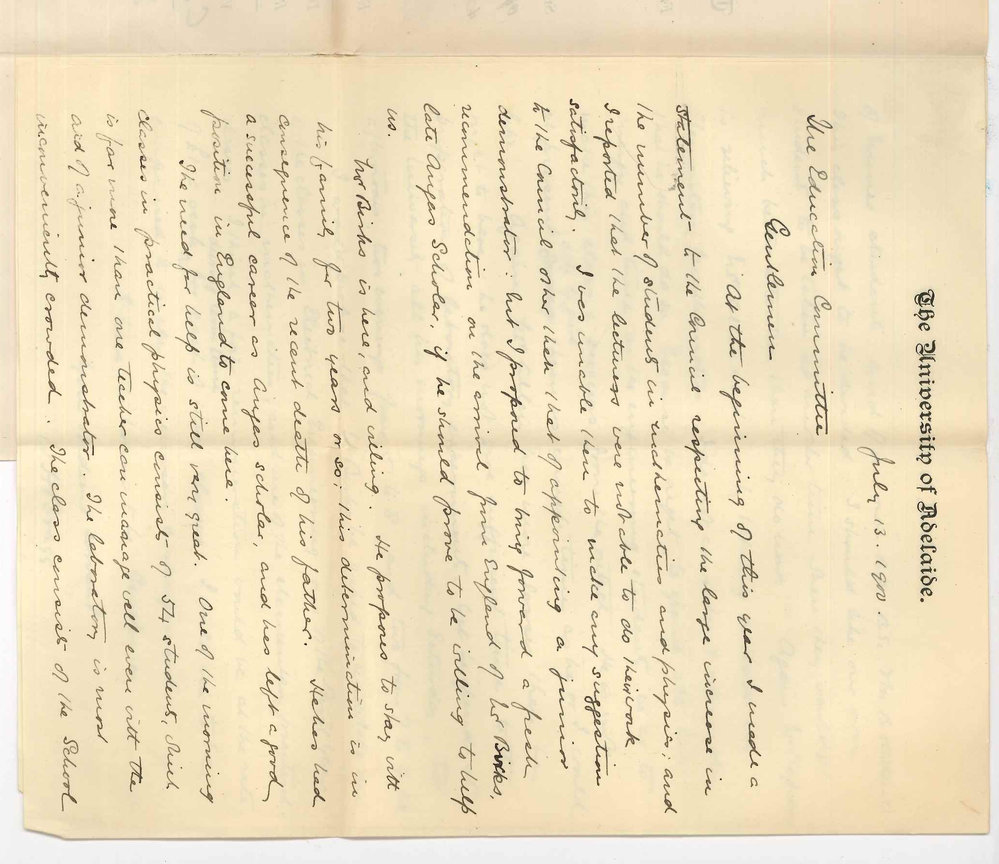 The University of Adelaide.
July 13. 1900.
The Education Committee
Gentlemen
At the beginning of this year I made a
statement to the Council respecting the large increase in
the number of students in mathematics and physics; and
I reported that the lecturers were not able to do their work
satisfactorily. I was unable then to make any suggestion
to the Council other than that of appointing a junior
demonstrator: but I proposed to bring forward a fresh
recommendation on the arrival from England of Mr Birks,
late Angas Scholar, if he should prove to be willing to help
us.
Mr Birks is here, and willing. He proposes to stay with
his family for two years or so; this determination is in
consequence of the recent death of his father. He has had
a successful career as Angas scholar, and has left a good
position in England to come here.
The need for help is still very great. One of the morning
classes in practical physics consists of 54 students, which
is far more than one teacher can manage well even with the
aid of a junior demonstrator. The laboratory is most
inconveniently crowded. The class consists of the School